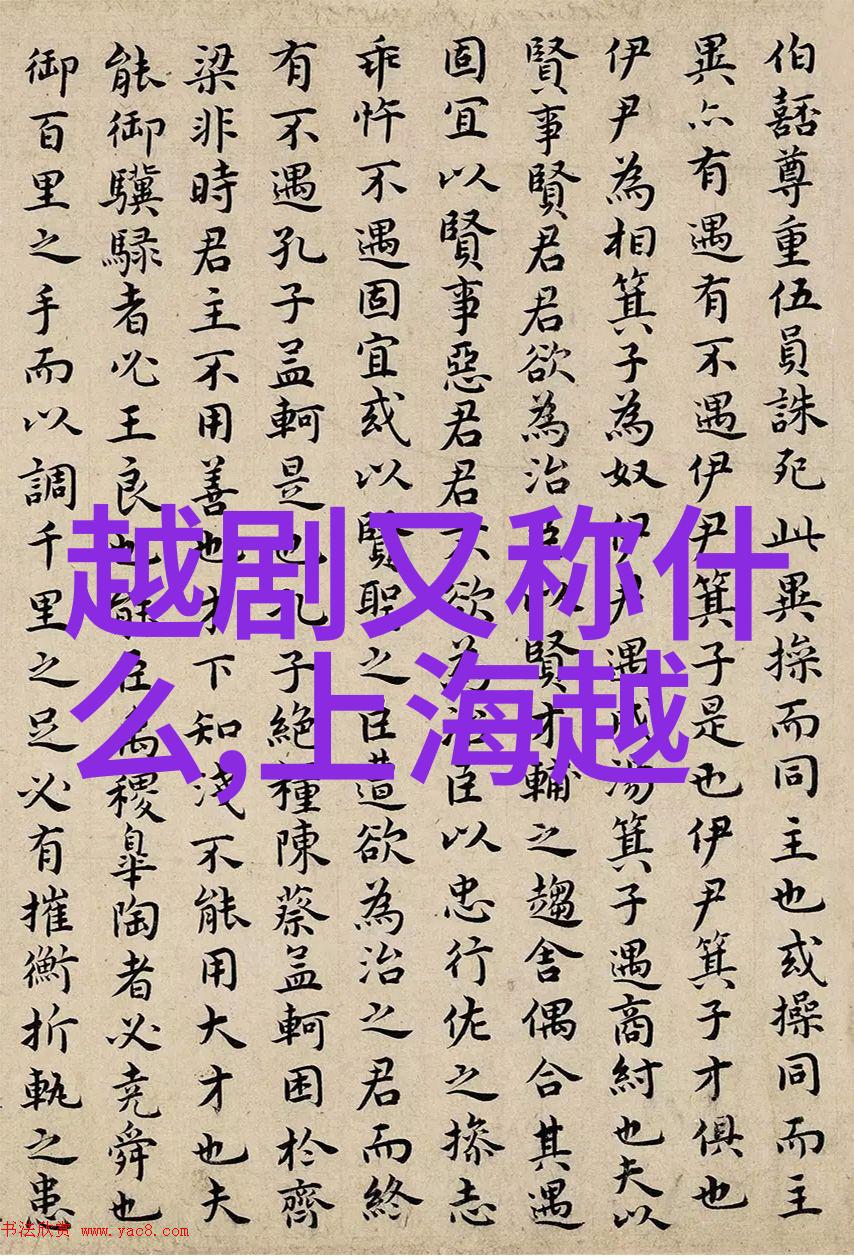 伯嚭尊重伍員誅死此異操而同主也或操同而主
異亦有遇有不遇伊尹箕子是也伊尹箕子才俱也
伊尹為相箕子為奴伊尹遇成湯箕子遇商紂也夫以
賢事賢君君欲為治臣以賢才輔之趨舍偶合其遇
固宜以賢事惡君君不欲為治臣以忠行佐之操志
乖忤不遇固宜或以賢聖之臣遭欲為治之君而終
有不遇孔子孟軻是也孔子絕糧陳蔡孟軻困於齊
梁非時君主不用善也才下知淺不能用大才也夫
能御驥騄者必王良也能臣禹稷皋陶者必堯舜也
御百里之手而以調千里之足必有摧衡折軛之患
越剧又称什
么,上海越
书法欣赏 www.yac8.com